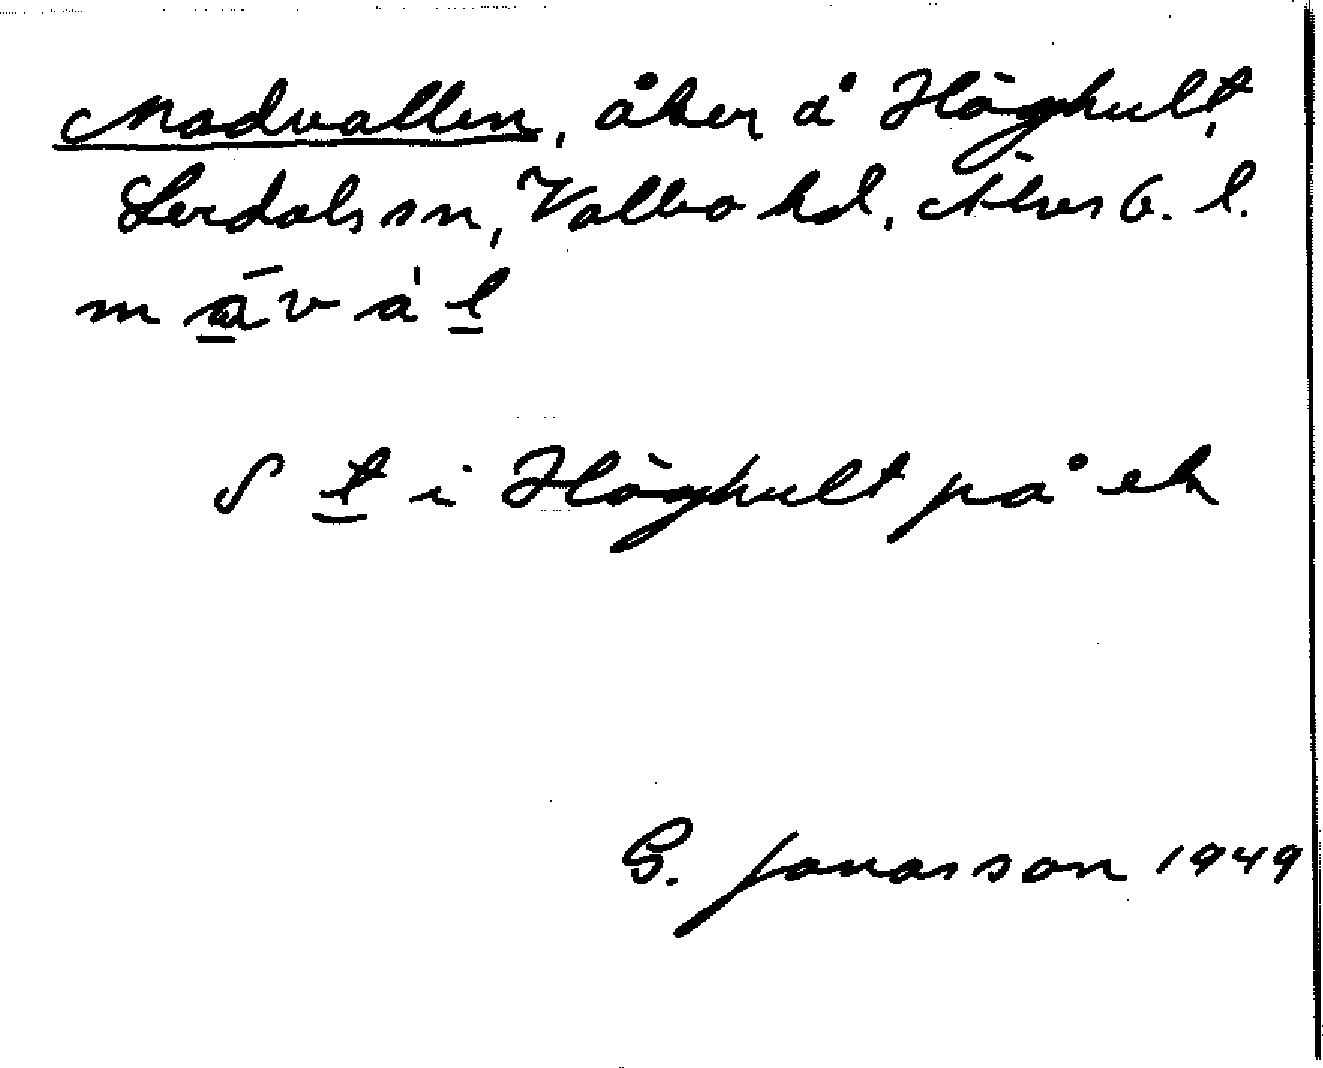 Madvallen, åker å Höghult,
Lerdals sn, Valbo hd, Älvsb. l.
m ā̱ v a̍ ḻ
S ṯ i Höghult på ek
G. Jonasson 1949